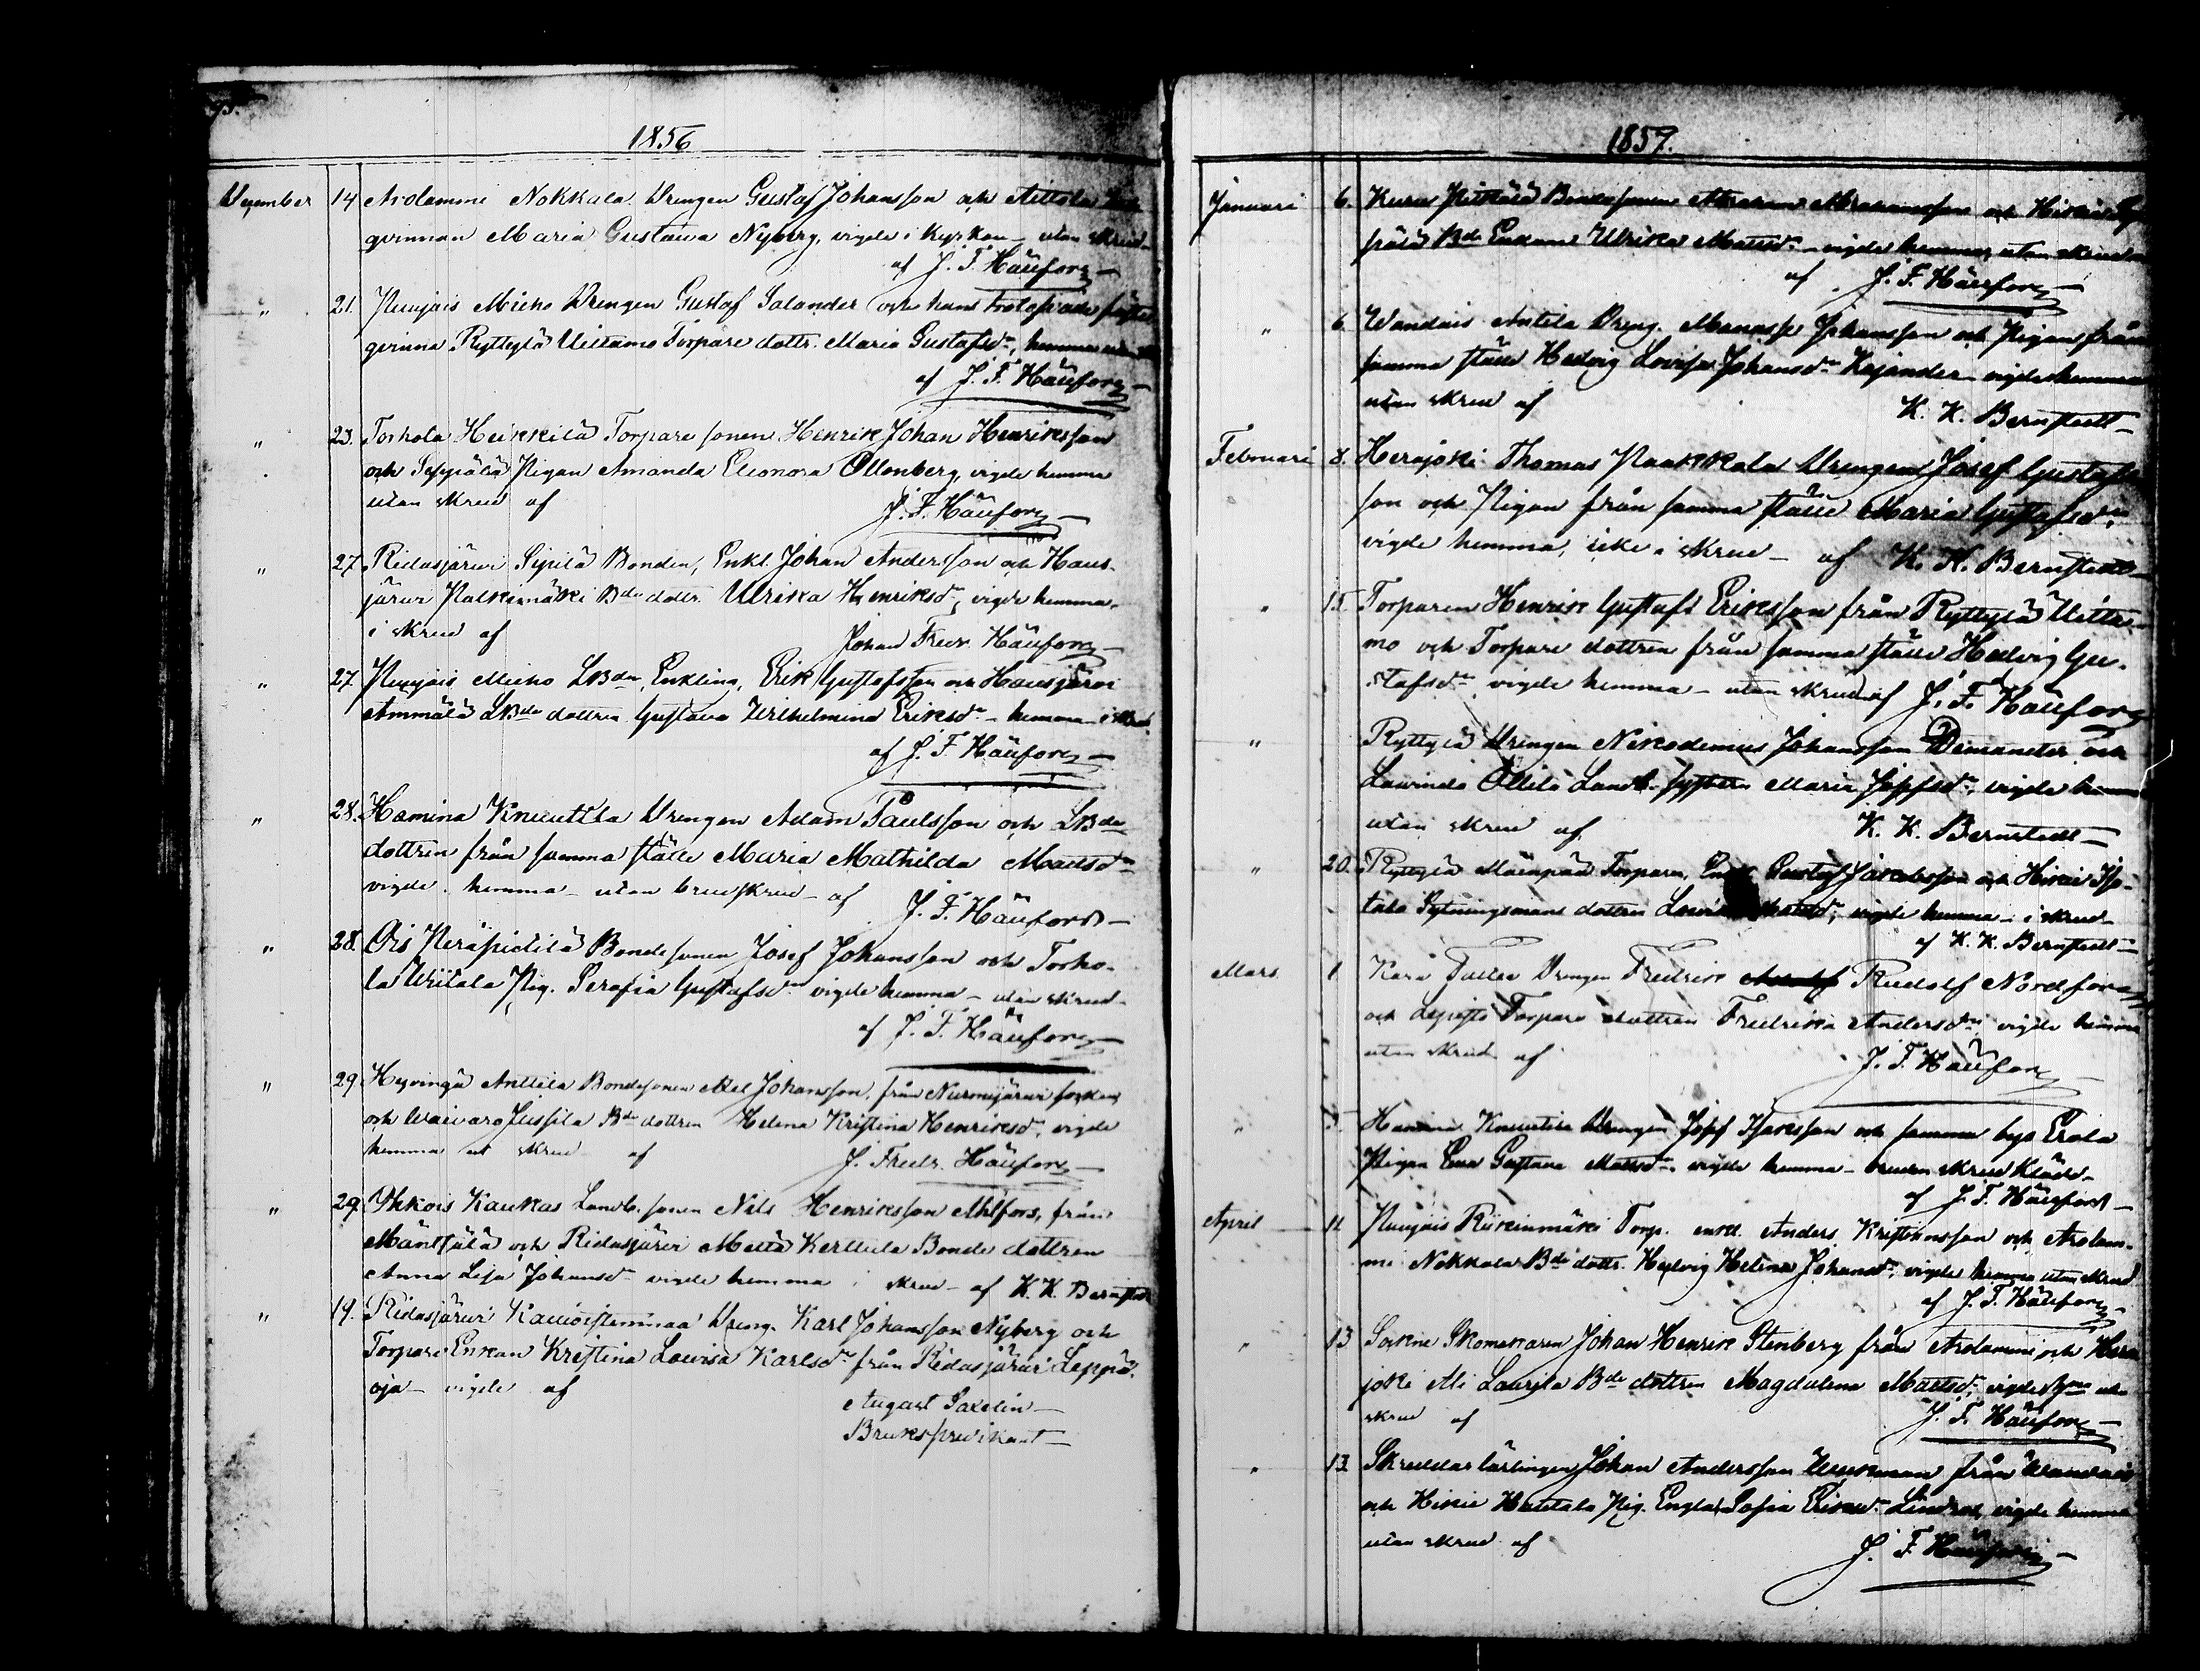 1856
December 14 Arolammi Nokkala Drengen Gustaf Johansson och Aittola
gvinnan Maria Gustava Nyberg, vigde i kyrkan – utan skrud –
af J. F. Häufors –
" 21. Nuujais Micko Drengen Gustaf Salander och hans trolofvade
gvinna Ryttylä Uittamo Torpare dottr. Maria Gustafsdr, hemma
af J. F. Häufors –
" 23. Torhola Heikkilä Torpare sonen Henrik Johan Henriksson
och Seppälä Pigan Amanda Eleonora Ollonberg, vigde hemma
utan skrud af J. F. Häufors –
" 27 Ridasjärvi Sipilä Bonden, Enkl. Johan Andersson och Haus-
järvi Palkinmäki Bde dottr. Ulrika Henriksdr, vigde hemma
i skrud af Johan Fredr. Häufors –
" 27. Nuujais Micko LBdn, Enkling, Erik Gustafsson och Hausjärvi
Ammälä LBde dottren Gustava Wilhelmina Eriksdr – hemma – i skrud
af J. F. Häufors –
" 28. Hamina Knuuttila Drengen Adam Paulsson och LBde
dottren från samma ställe Maria Mathilda Mattsdr
vigde hemma – utan brudskrud – af J. F. Häufors –
" 28. Ois Peräpietilä Bondesonen Josef Johansson och Torho-
la Uitala Pig. Serafia Gustafsdr vigde hemma – utan skrud –
af J. F. Häufors –
" 29 Hyvingä Anttila Bondesonen Abel Johansson, från Nurmijärvi socken
och Waivaro Jussila Bde dottren Helena Kristina Henriksdr, vigde
hemma skrud af J. Fredr. Häufors –
" 29. Ykkois Kaukas Landb. sonen Nils Henriksson Ahlfors, från
Mäntsälä och Ridasjärvi Mettä Kerttula Bonde dottren
Anna Lisa Johansdr vigde hemma i skrud – af K. K. Bernstedt
" 19. Ridasjärvi Dreng. Karl Johansson Nyberg och
Torpare Enkan Kristina Lovisa Karlsdr från Ridasjärvi Leppä-
oja – vigde af
August Saxelin –
Brukspredikant –
1857.
Januari 6. Kuru Pietilä Bondesonen Abraham Abrahamsson och Hikiä
Bde Enkan Ulrika Mattsdr – vigde hemma, utan skrud
af J. F. Häufors –
" 6. Wandais Antila Dreng. Manasse Johansson och Pigan från
samma ställe Hedvig Lovisa Johansdr Kajander – vigde hemma
utan skrud af K. K. Bernstedt –
Februari 8. Herajoki Thomas Paakkala Drengen Josef Gustafs-
son och Pigan från samma ställe Maria Gustafsdr,
vigde hemma, icke i skrud – af K. K. Bernstedt –
" 15. Torparen Henrik Gustaf Eriksson från Ryttylä Uitta-
mo och Torpare dottren från samma ställe Hedvig Gu-
stafsdr vigde hemma – utan skrud af J. F. Häufors
" Ryttylä Drengen Nikodemus Johansson Dimander och
Lavinda Ollila Landb. systern Maria Josefsdr, vigde hemma
utan skrud af K. K. Bernstedt –
" 20. Ryttylä Mäenpää Torparen, Gustaf Jakobsson och Hikiä Iso-
talo Sytningsmans dottren vigde hemma – i skrud –
af K. K. Bernstedt –
Mars 1. Kara Drengen Fredrik Rudolf Nordfors
och Lepisto Torpare dottren Fredrika Andersdr, vigde hemma
utan skrud af J. F. Häufors
" Hamina Knuutila Drengen Josef Isaksson och samma bys Erola
Pigan Eva Gustava Mattsdr, vigde hemma – bruden skrud klädd –
af J. F. Häufors –
April 11. Nuujais Riikinmäki Torp. enkl. Anders Kristiansson och Arolam-
mi Nokkala Bde dottr. Hedvig Helena Johansdr, vigde hemma utan skrud
af J. F. Häufors –
" 13 Sockne Skomakaren Johan Henrik Stenberg från Arolammi och Hera-
joki Ali Laurila Bde dottren Magdalena Mattsdr, vigde hma utan
skrud af J. F. Häufors –
" 13. Skreddar lärlingen Johan Andersson från Wandais
och Hikiä Huhtala Pig. Engla Sofia Eriksdr vigde hemma
utan skrud af
J. F. Häufors –